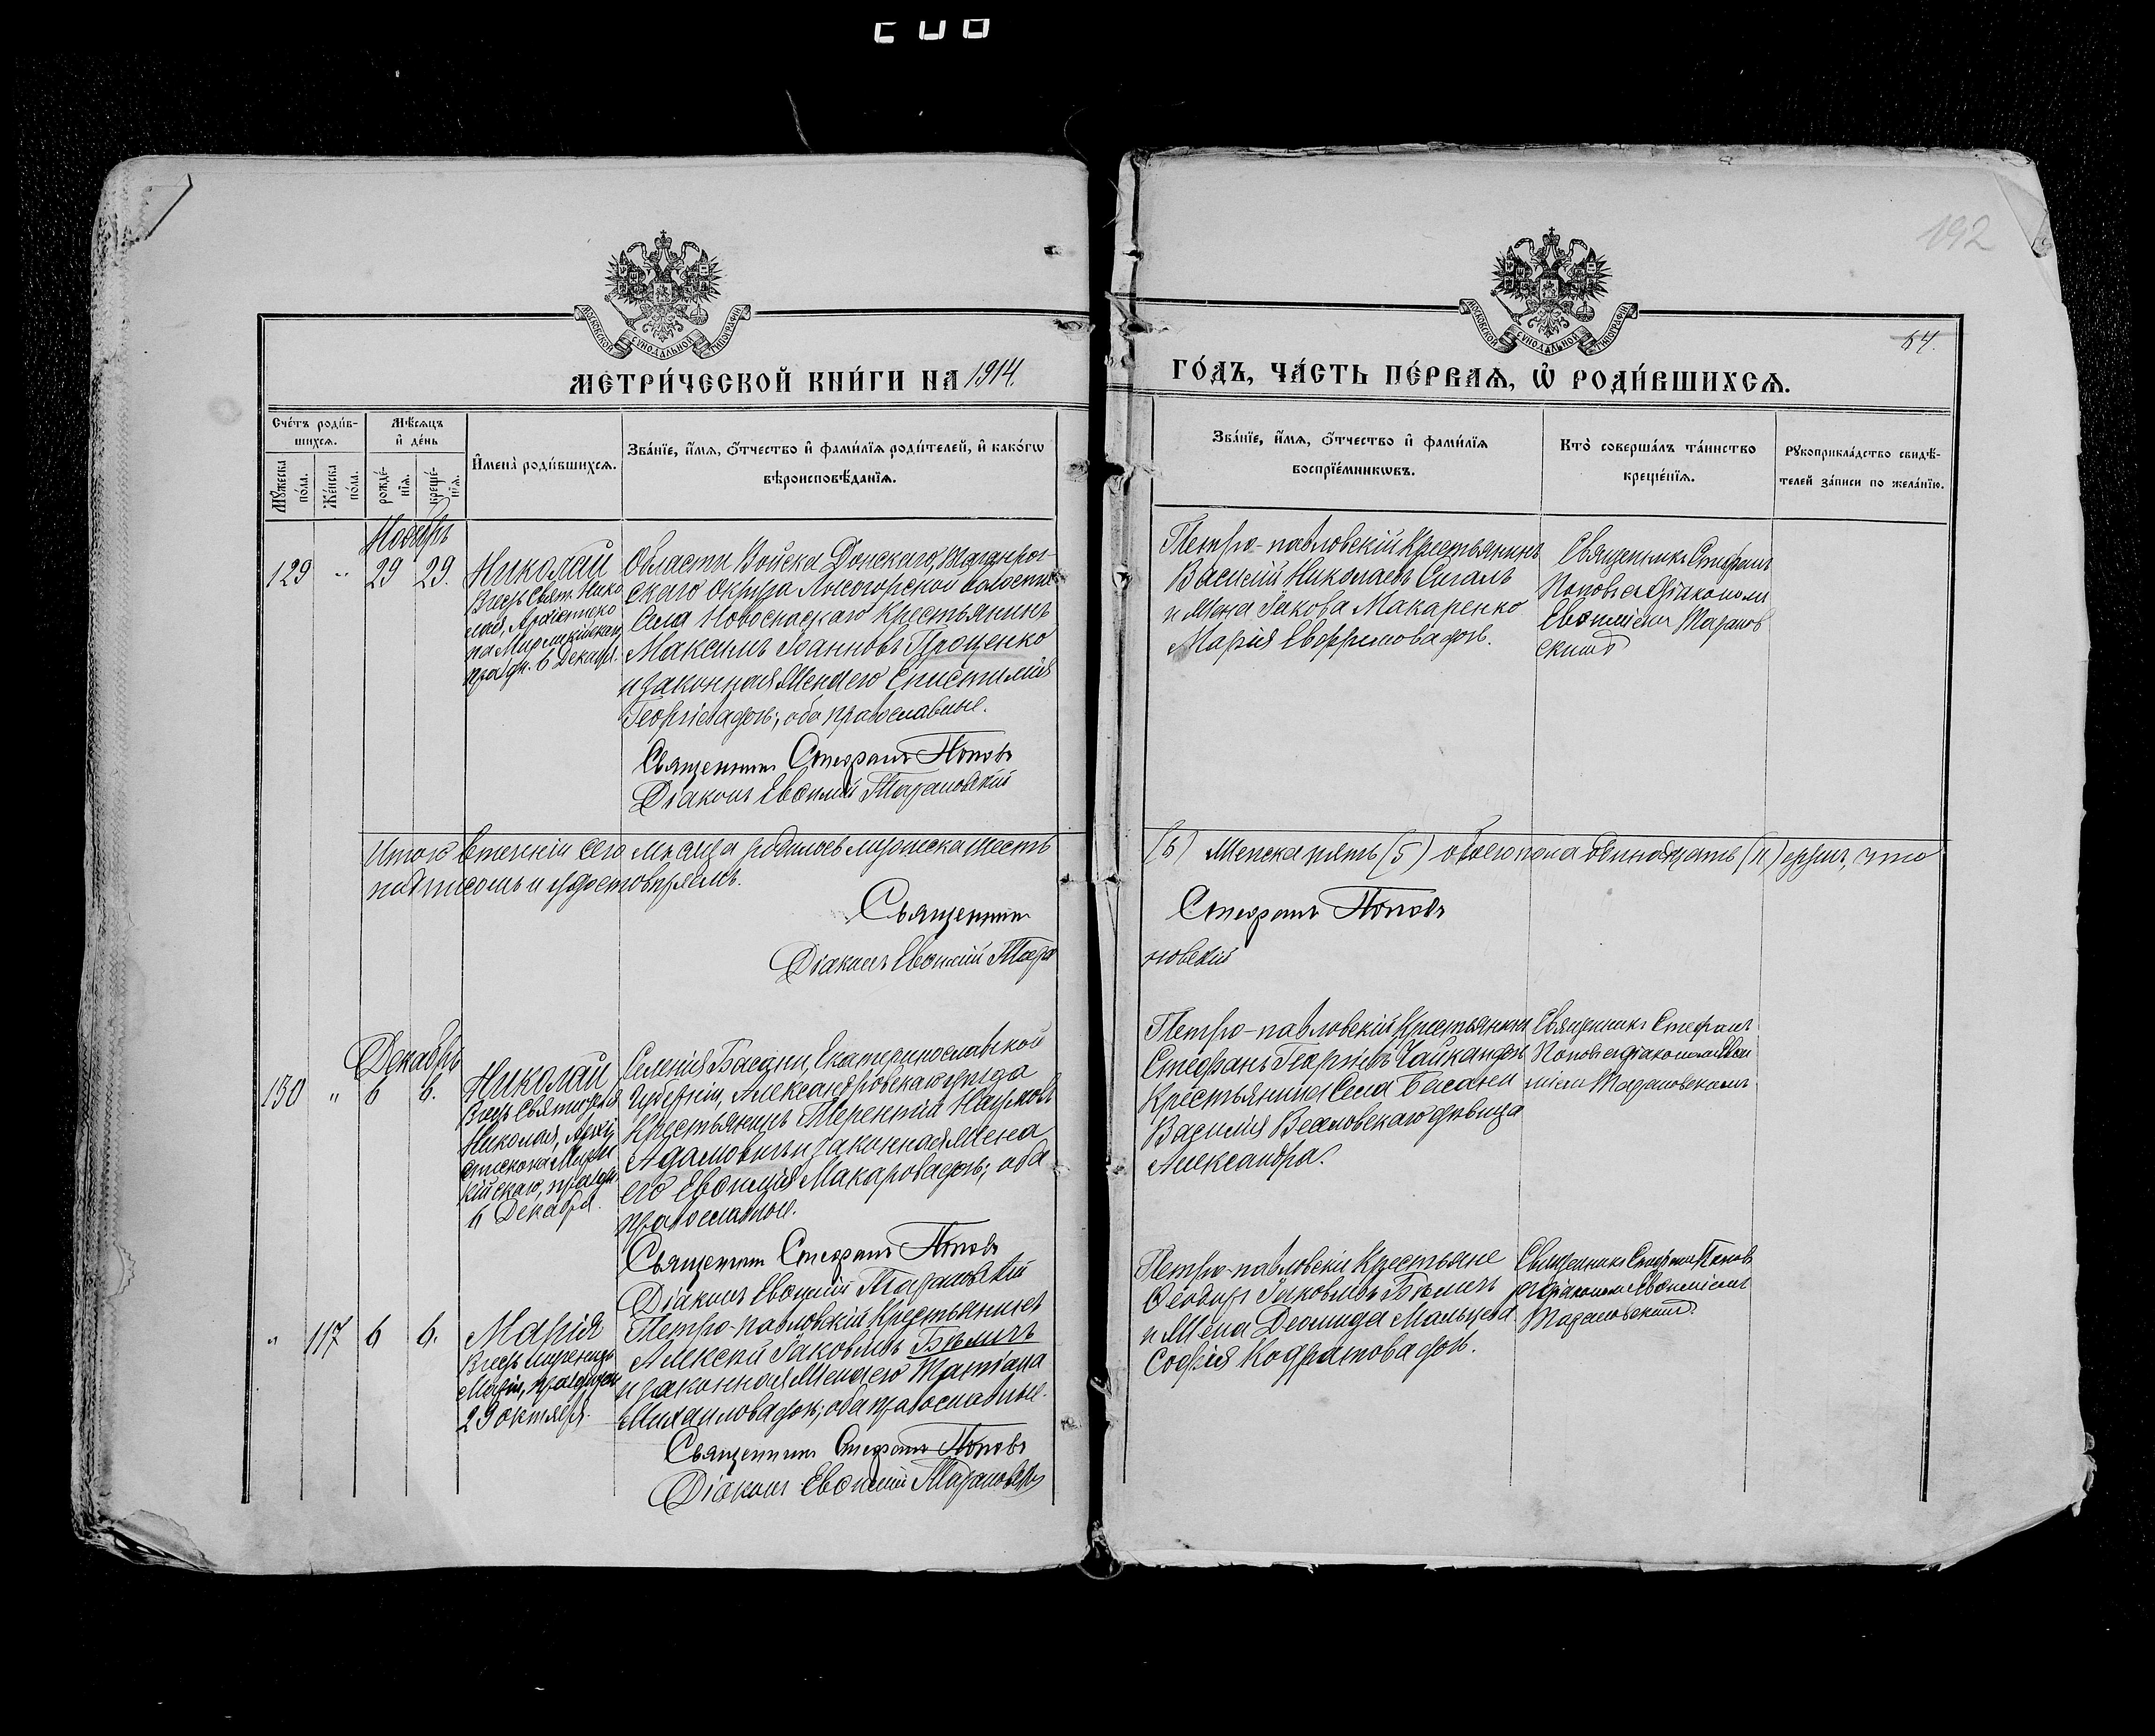 192
МОСКОВСКОЙ СѴНОДАЛЬНОЙ ТИПОГРАФІИ
МОСКОВСКОЙ СѴНОДАЛЬНОЙ ТИПОГРАФІИ
64.
МЕТРИ́ЧЕСКОЙ КНИ́ГИ НА 1914.
ГО́ДЪ, ЧА́СТЬ ПЕ́РВАѦ, Ѡ҆ РОДИ́ВШИХСѦ.
Сче́тъ роди́в-
шихсѧ.
Мѣ́сѧцъ
и҆ де́нь
Мꙋ́жеска
по́ла.
Же́нска
по́ла.
рожде́-
нїѧ.
креще́-
нїѧ.
И҆мена̀ роди́вшихсѧ.
Зва́нїе, и҆́мѧ, ѻ҆́тчество и҆ фами́лїѧ роди́телей, и҆ како́гѡ
вѣроисповѣ́данїѧ.
Зва́нїе, и҆́мѧ, ѻ҆́тчество и҆ фами́лїѧ
воспрїе́мникѡвъ.
Кто̀ соверша́лъ та́инство
креще́нїѧ.
Рꙋкоприкла́дство свидѣ́-
телей за́писи по жела́нїю.
Ноябрь
129 " 29 29.
Николай
Въ честь Свят. Нико
лая, Архіепископа
Мирликійскаго
праздн. 6 Декабр.
Области Войска Донскаго, Таганрог-
скаго Округа Лысогорской волости
Села Новоспаскаго Крестьянинъ
Максимъ Іоанновъ Проценко
и законная Жена его Епистимія
Георгіева доч.; оба православные.
Священникъ Стефанъ Поповъ
Діаконъ Евѳимій Тарановскій
Петро-павловскій Крестьянинъ
Василій Николаевъ Сигалъ
и Жена Іакова Макаренко
Марія Евфимова доч.
Священникъ Стефанъ
Поповъ съ діакономъ
Евѳиміемъ Таранов
скимъ
Итого въ теченіи сего мѣсяца родилось мужеска шесть
(6) Женска пять (5) обоего пола одиннадцать (11) душъ, что
подписомъ и удостовѣряемъ.
Священникъ
Стефанъ Поповъ
Діаконъ Евѳимій Тара
новскій
Декабрь
130 " 6 6.
Николай
Въ честь Святителя
Николая, Архі
епископа Мирли
кійскаго, праздн.
6 Декабря.
Селенія Басани, Екатеринославской
Губерніи, Александровскаго уѣзда
Крестьянинъ Терентій Наумовъ
Адамовичъ и законная Жена
его Евѳимія Макарова доч.; оба
православные.
Священникъ Стефанъ Поповъ
Діаконъ Евѳимій Тарановскій
Петро-павловскій Крестьянинъ
Стефанъ Георгіевъ
Крестьянина Села Басани
Василія Веселовскаго дѣвица
Александра.
Священникъ Стефанъ
Поповъ съ діакономъ Евѳи
міемъ Тарановскимъ
" 117 6 6.
Марія
Въ честь мученицы
Маріи, праздн.
29 октября.
Петро-павловскій Крестьянинъ
Алексѣй Іаковлевъ Бѣличъ
и законная Жена его Татіана
Михаилова доч.; оба православные.
Священникъ Стефанъ Поповъ
Діаконъ Евѳимій Тарановскій
Петро-павловскіи Крестьяне
Ѳеодоръ Іаковлевъ Бѣличъ
и Жена Леонида Мальцева
Софія Кодратова доч.
Священникъ Стефанъ Поповъ
съ діакономъ Евѳиміемъ
Тарановскимъ.